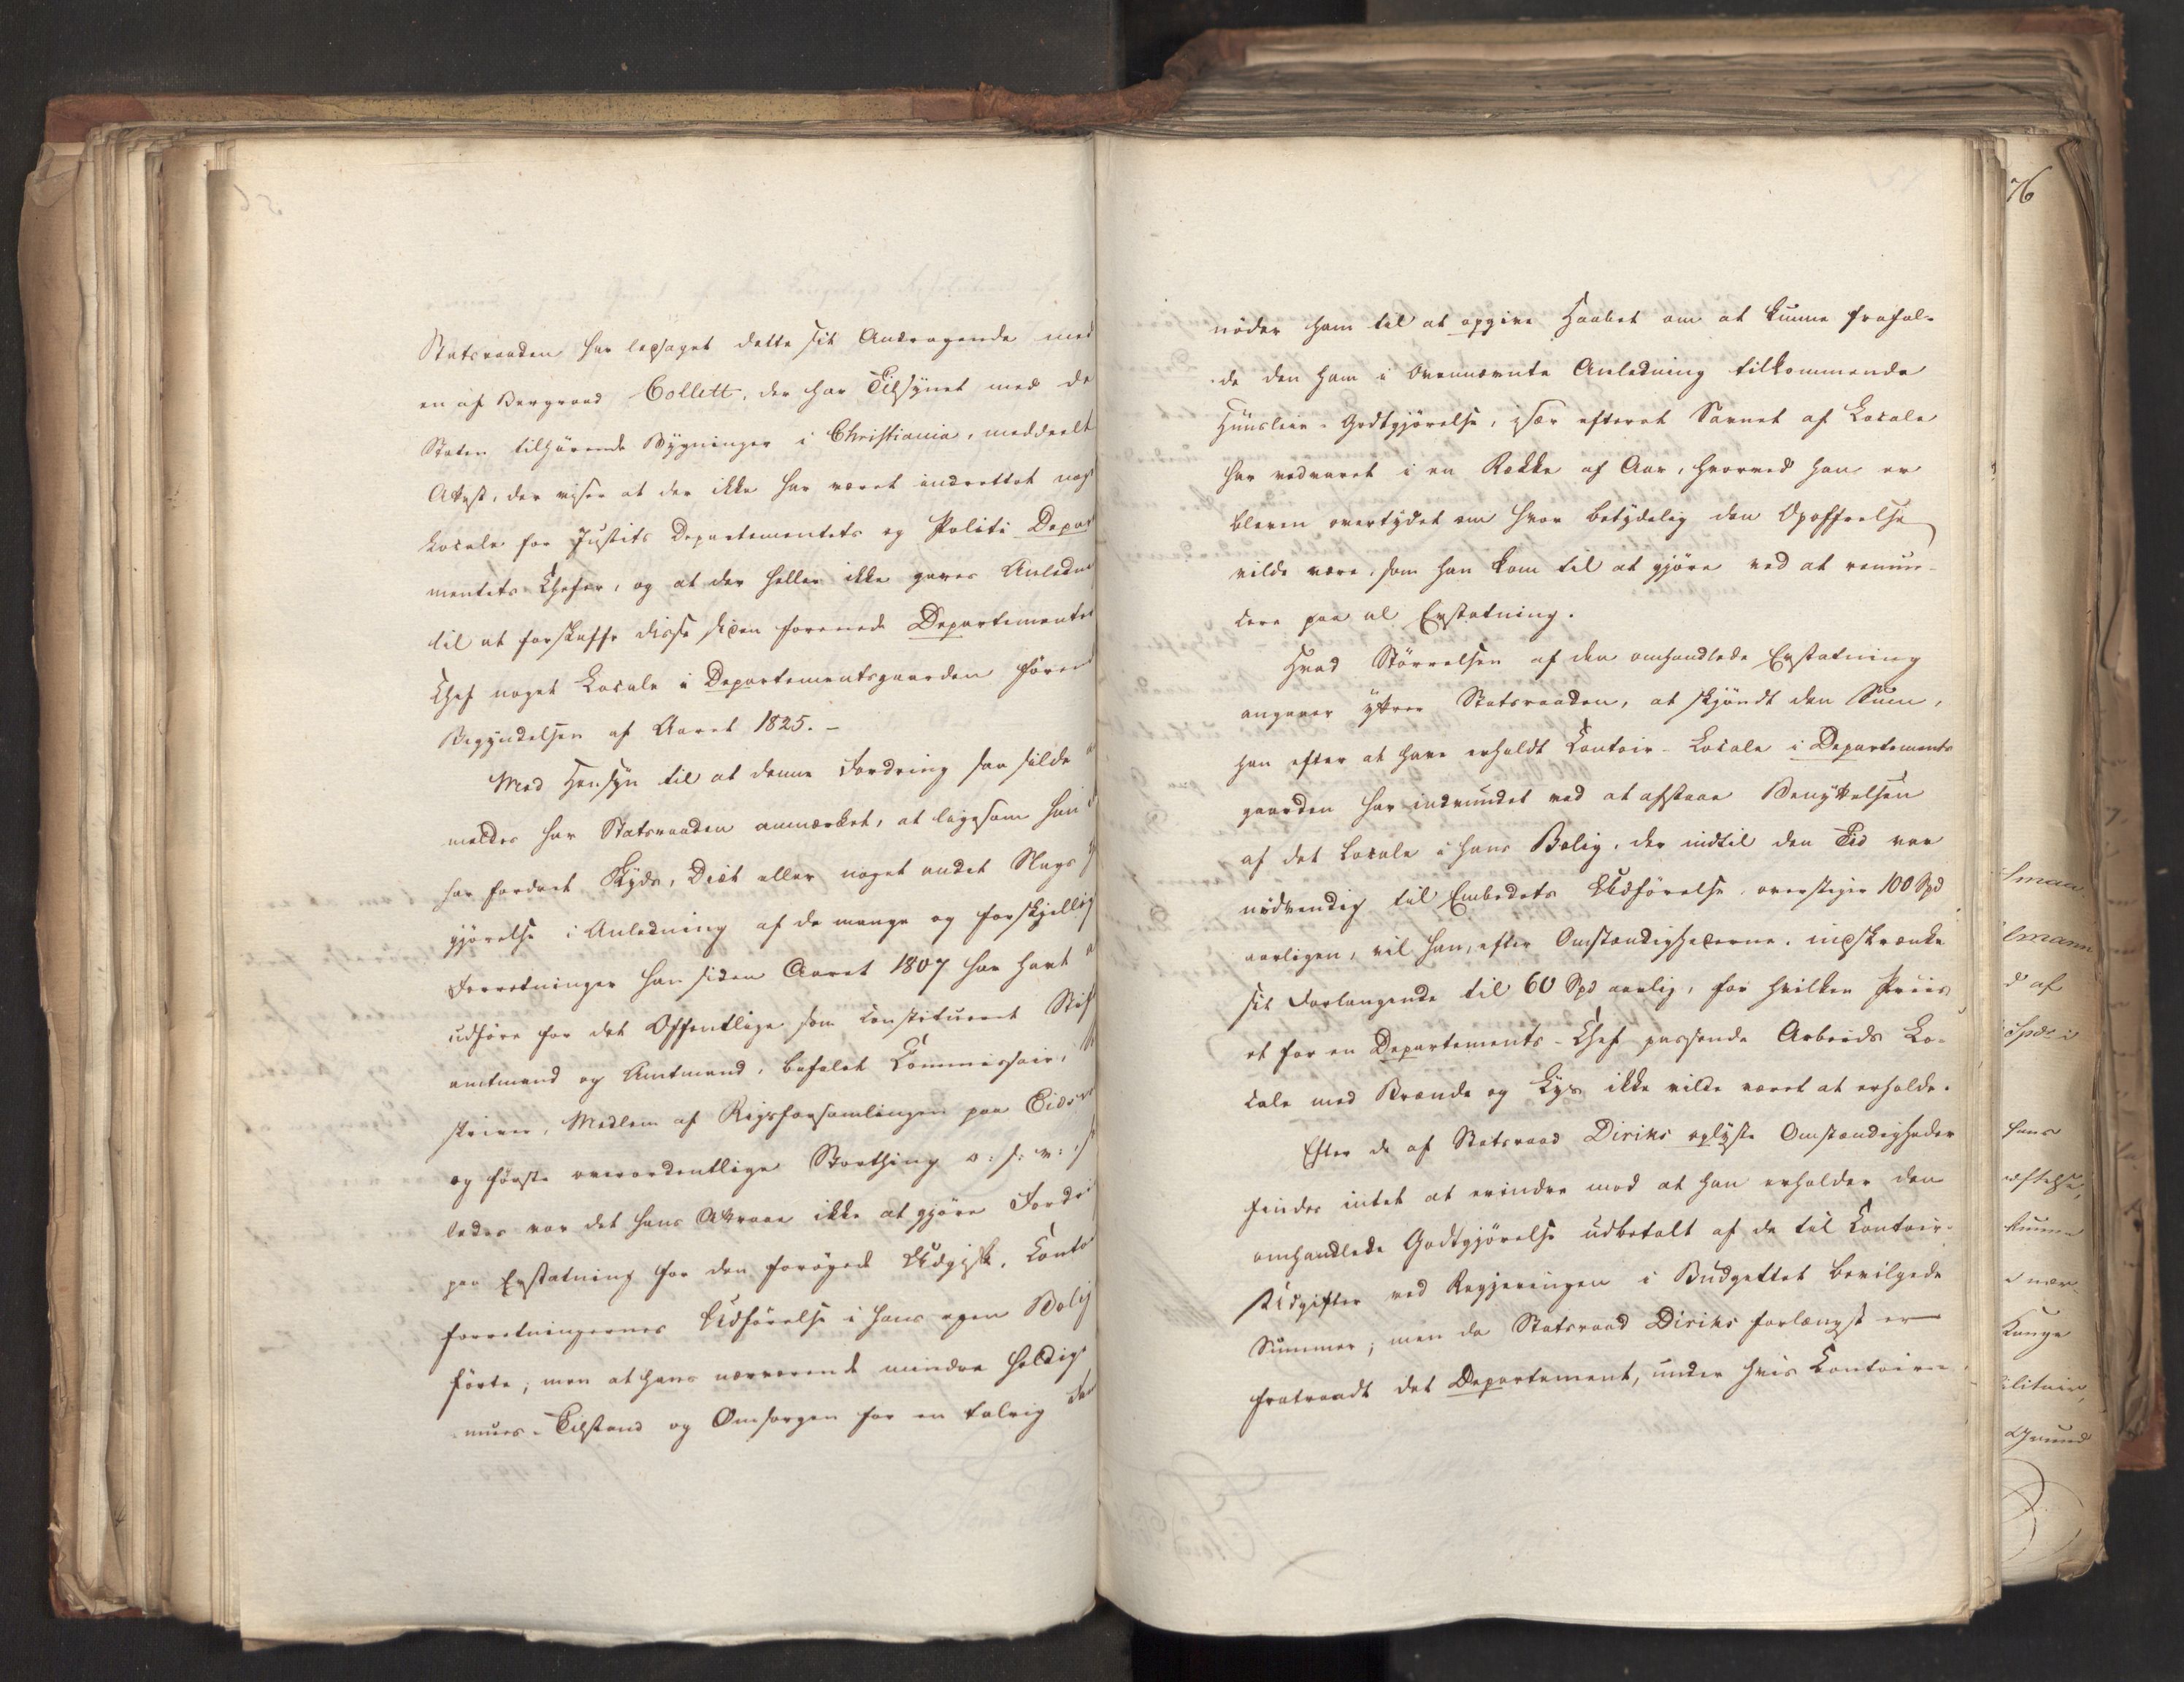 Statsraaden har ledsaget dette sit Andragende med
en af Bergraad Collett, der har Tilsynet med de
Staten tilhørende Bygninger i Christiania, meddeelt
Attest, der viser at der ikke har været indrettet nog
Locale for Justits Departementets og Politi Depar
mentets Chefer, og at der heller ikke gaves Anledn
til at forskaffe disse siden forenede Departementer
Chef noget Locale i Departementsgaarden føren
Begyndelsen af Aaret 1825. –
Med Hensyn til at denne Fordring saa silde a
meldes har Statsraaden anmærket, at ligesom han ei
har fordret Skyds, Diæt eller noget andet Slags
gjørelse i Anledning af de mange og forskjellig
Forretninger han siden Aaret 1807 har havt a
udføre for det Offentlige som constitueret Stif
amtmand og Amtmand, befalet Commissair,
skriver, Medlem af Rigsforsamlingen paa Eids
og første overordentlige Storthing o: s: v:, s
ledes var det hans Attraae ikke at gjøre Fordri
paa Erstatning for den forøgede Udgift, Conto
forretningernes Udførelse i hans egen Bolig
førte; men at hans nærværende mindre heldig
-mues-Tilstand og Omsorgen for en talrig Fam
nöder ham til at opgive Haabet om at kunne frafal-
de den ham i Ovennævnte Anledning tilkommende
Huusleie-Godtgjørelse, især efterat Savnet af Locale
har vedvaret i en Række af Aar, hvorved han er
bleven overtydet om hvor betydelig den Opoffrelse
vilde være, som han kom til at gjøre ved at renun-
cere paa al Erstatning.
Hvad Størrelsen af den omhandlede Erstatning
angaaer yttrer Statsraaden, at skjøndt den Sum,
han efter at have erholdt Contoir-Locale i Departements
gaarden har indvundet ved at afstaae Benyttelsen
af det Locale i hans Bolig, der indtil den Tid var
nødvendig til Embedets Udførelse, overstiger 100 Spd
aarligen, vil han, efter Omstændighederne, indskrænke
sit Forlangende til 60 Spd aarlig, for hvilken Priis
et for en Departements-Chef passende Arbeids Lo-
cale med Brænde og Lys ikke vilde været at erholde.
Efter de af Statsraad Diriks oplyste Omstændigheder
findes intet at erindre mod at han erholder den
omhandlede Godtgjørelse udbetalt af de til Contoir-
Udgifter ved Regjeringen i Budgettet bevilgede
Summer; men da Statsraad Diriks forlængst er
fratraadt det Departement, under hvis Contoirer
76
lmann
d af
hans
kunne
Konge
Grund